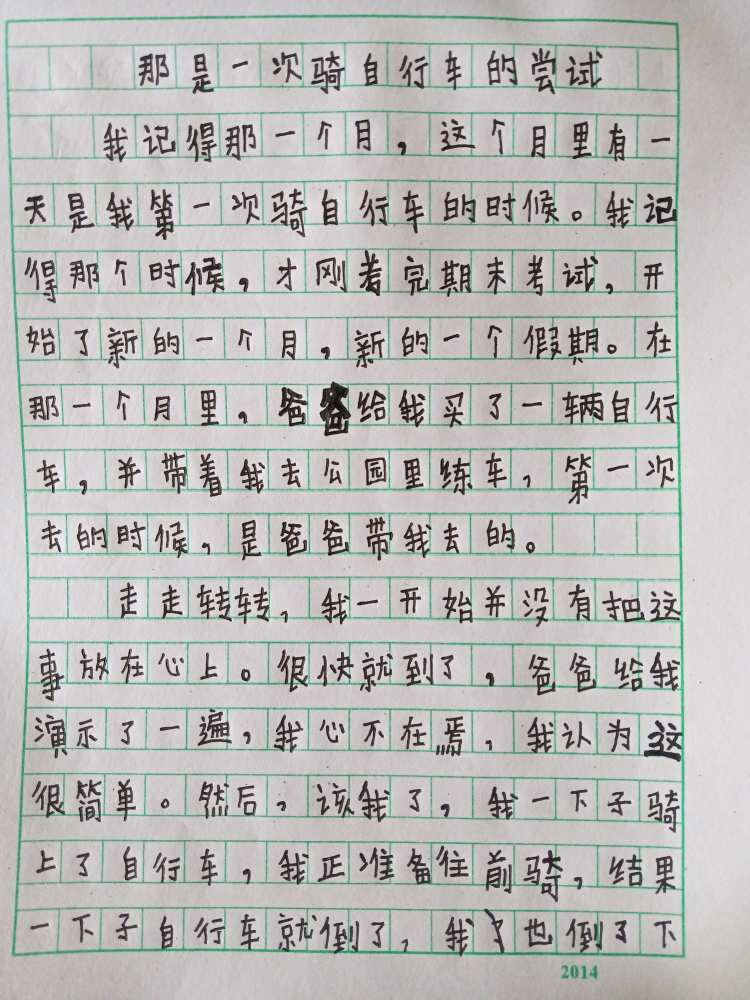 那是一次骑自行车的尝试
我记得那一个月，这个月里有一
天是我第一次骑自行车的时候。我记
得那个时候，才刚着完期末考试，开
始了新的一个月，新的一个假期。在
那一个月里，爸爸给我买了一辆自行
车，并带着我去公园里练车，第一次
去的时候，是爸爸带我去的。
走走转转，我一开始并没有把这
事放在心上。很快就到了，爸爸给我
演示了一遍，我心不在焉，我认为这
很简单。然后，该我了，我一下子骑
上了自行车，我正准备往前骑，结果
一下子自行车就倒了，我也倒了下
2014